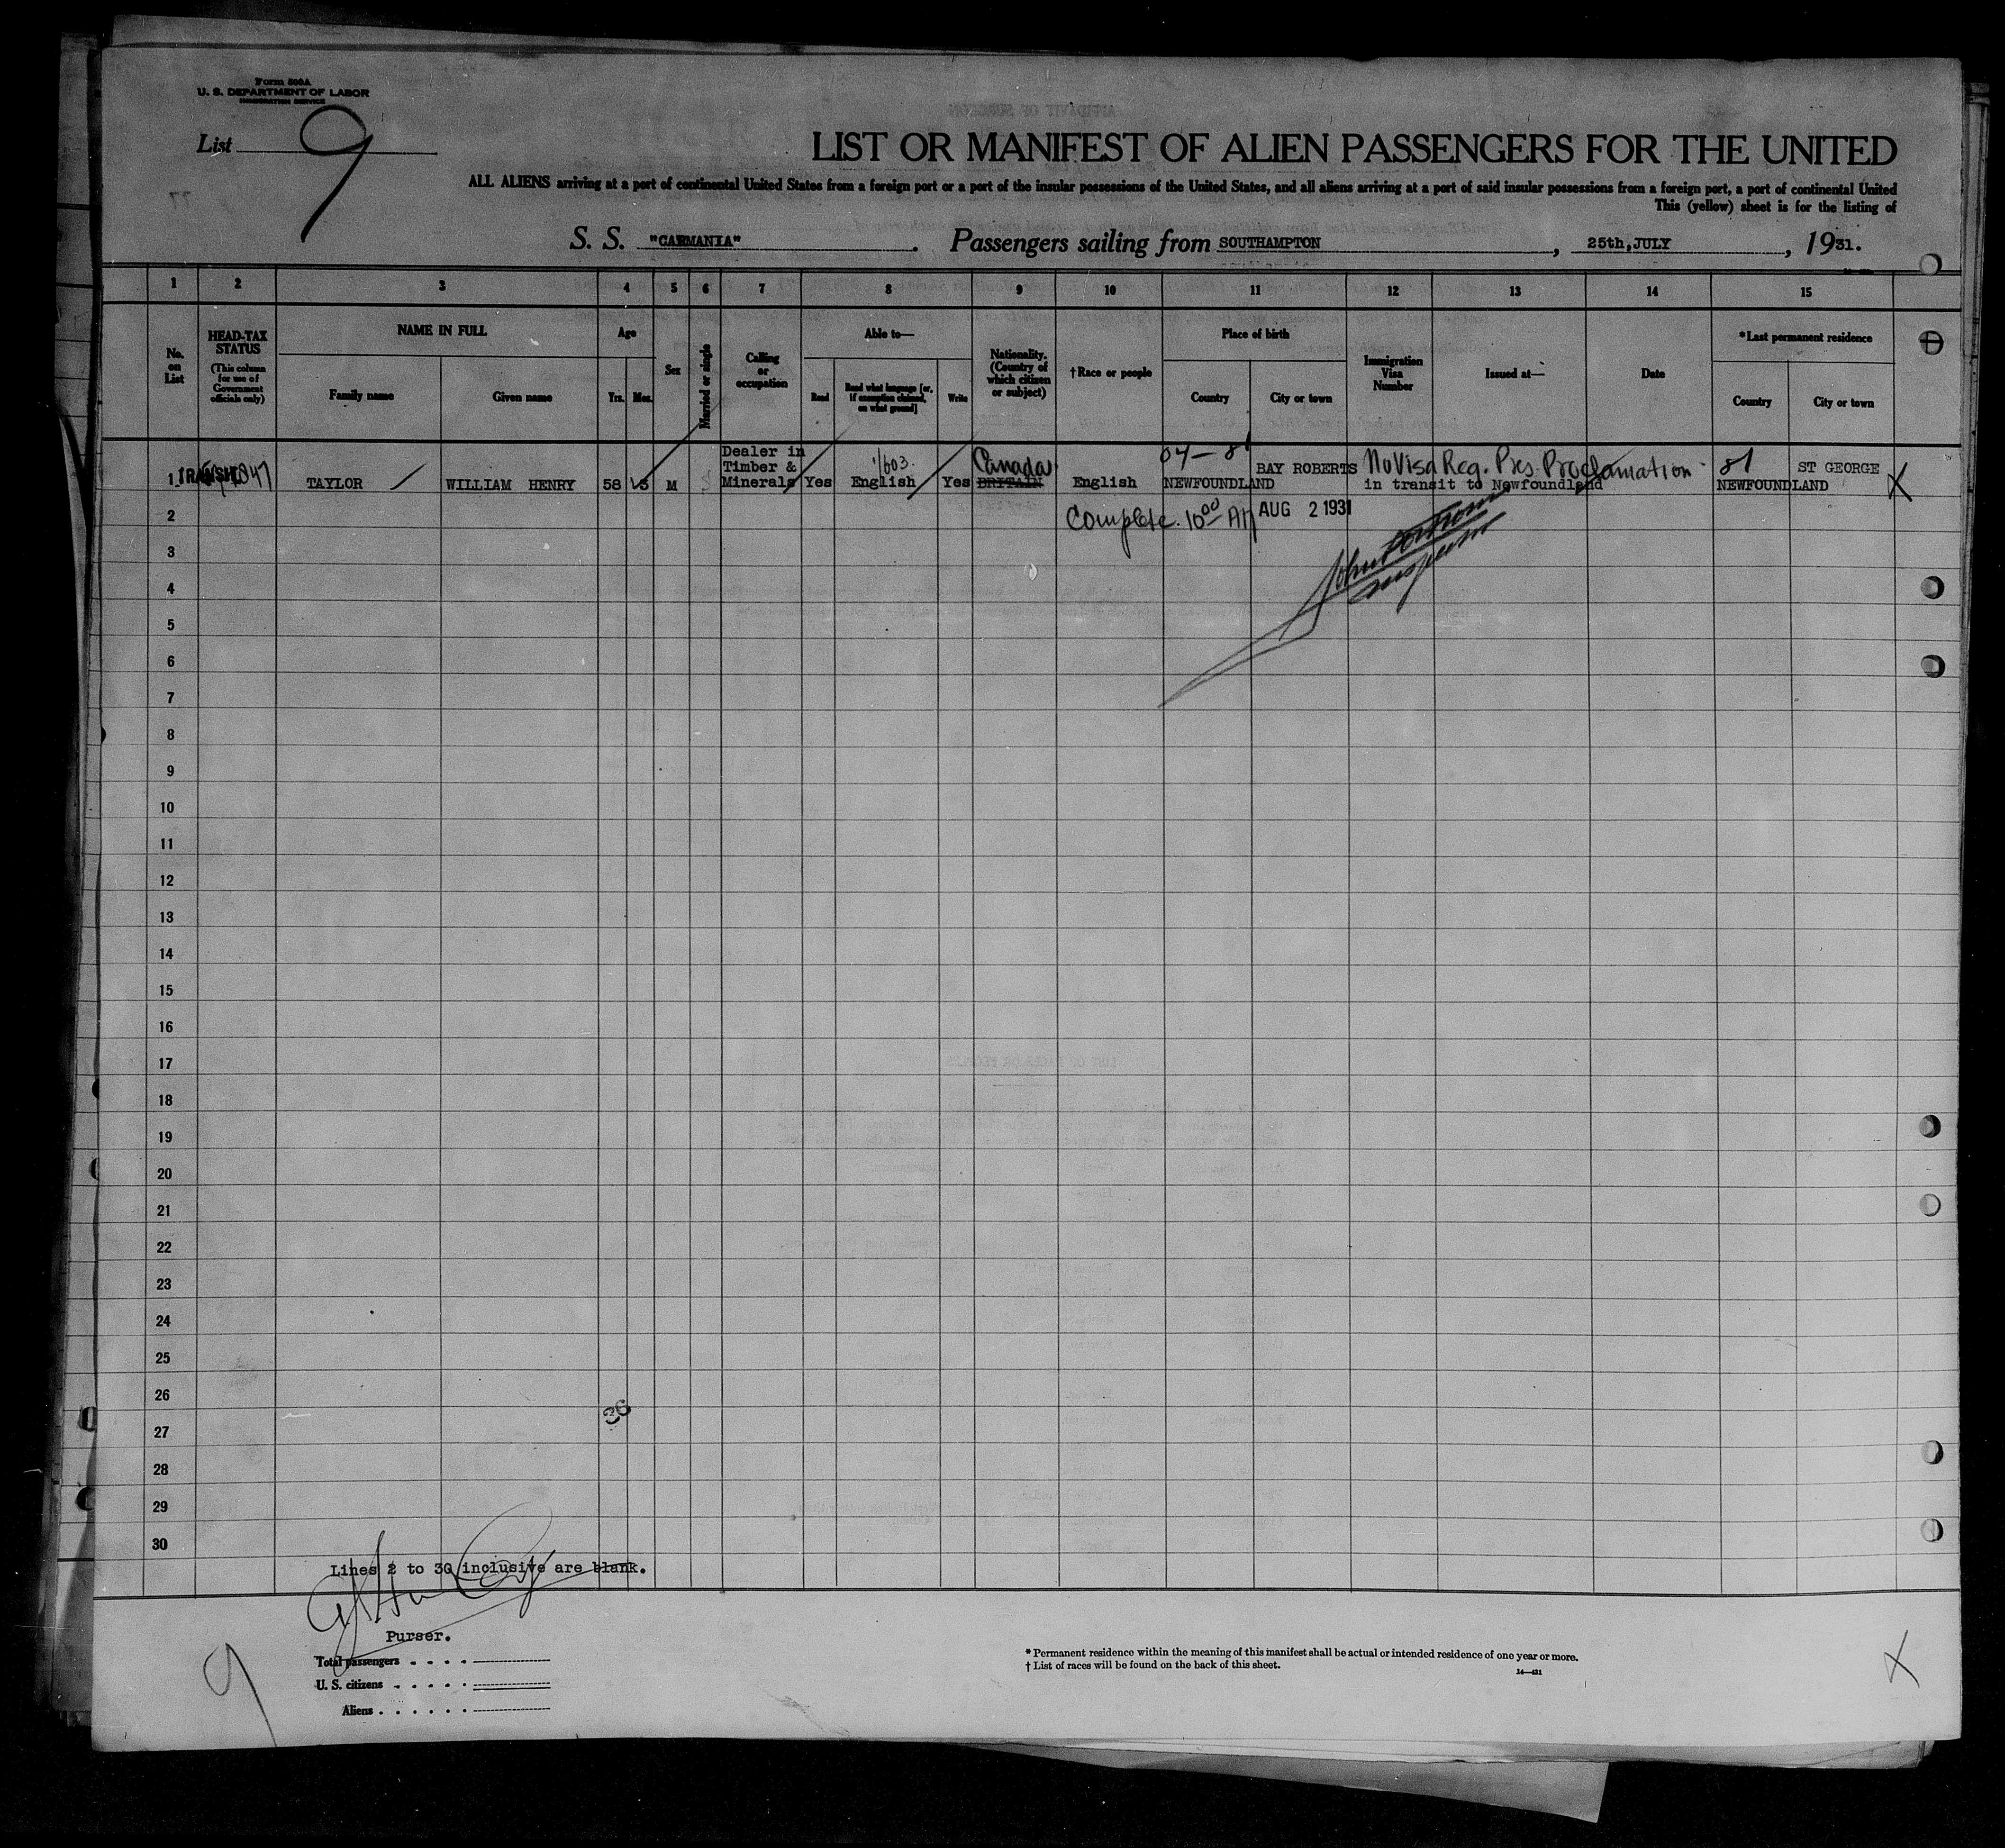 Form 500A
U. S. DEPARTMENT OF LABOR
IMMIGRATION SERVICE
List 9
LIST OR MANIFEST OF ALIEN PASSENGERS FOR THE UNITED
ALL ALIENS arriving at a port of continental United States from a foreign port or a port of the insular possessions of the United States, and all aliens arriving at a port of said insular possessions from a foreign port, a port of continental United
This (yellow) sheet is for the listing of
S. S. "CARMANIA". Passengers sailing from SOUTHAMPTON, 25th, JULY, 1931.
1 2 3 4 5 6 7 8 9 10 11 12 13 14 15
No. on List
HEAD-TAX STATUS (This column for use of Government officials only)
NAME IN FULL
Family name
Given name
Age
Yrs. Mos.
Sex
Married or single
Calling or occupation
Able to—
Read
Read what language [or, if exemption claimed, on what ground]
Write
Nationality. (Country of which citizen or subject)
†Race or people
Place of birth
Country
City or town
Immigration Visa Number
Issued at—
Date
*Last permanent residence
Country
City or town
04-81
1 TRANSIT TAYLOR WILLIAM HENRY 58 5 M S Dealer in Timber & Minerals Yes English Yes Canada BRITAIN English NEWFOUNDLAND BAY ROBERTS No Visa Req. Pres. Proclamation in transit to Newfoundland 81 NEWFOUNDLAND ST GEORGE X
2 Complete 10 00 AM AUG 2 1931
3
4
Inspector
5
6
7
8
9
10
11
12
13
14
15
16
17
18
19
20
21
22
23
24
25
26
27
28
29
30
Lines 2 to 30 inclusive are blank.
Purser.
Total passengers
U. S. citizens
Aliens
9
* Permanent residence within the meaning of this manifest shall be actual or intended residence of one year or more.
† List of races will be found on the back of this sheet.
14—421
X